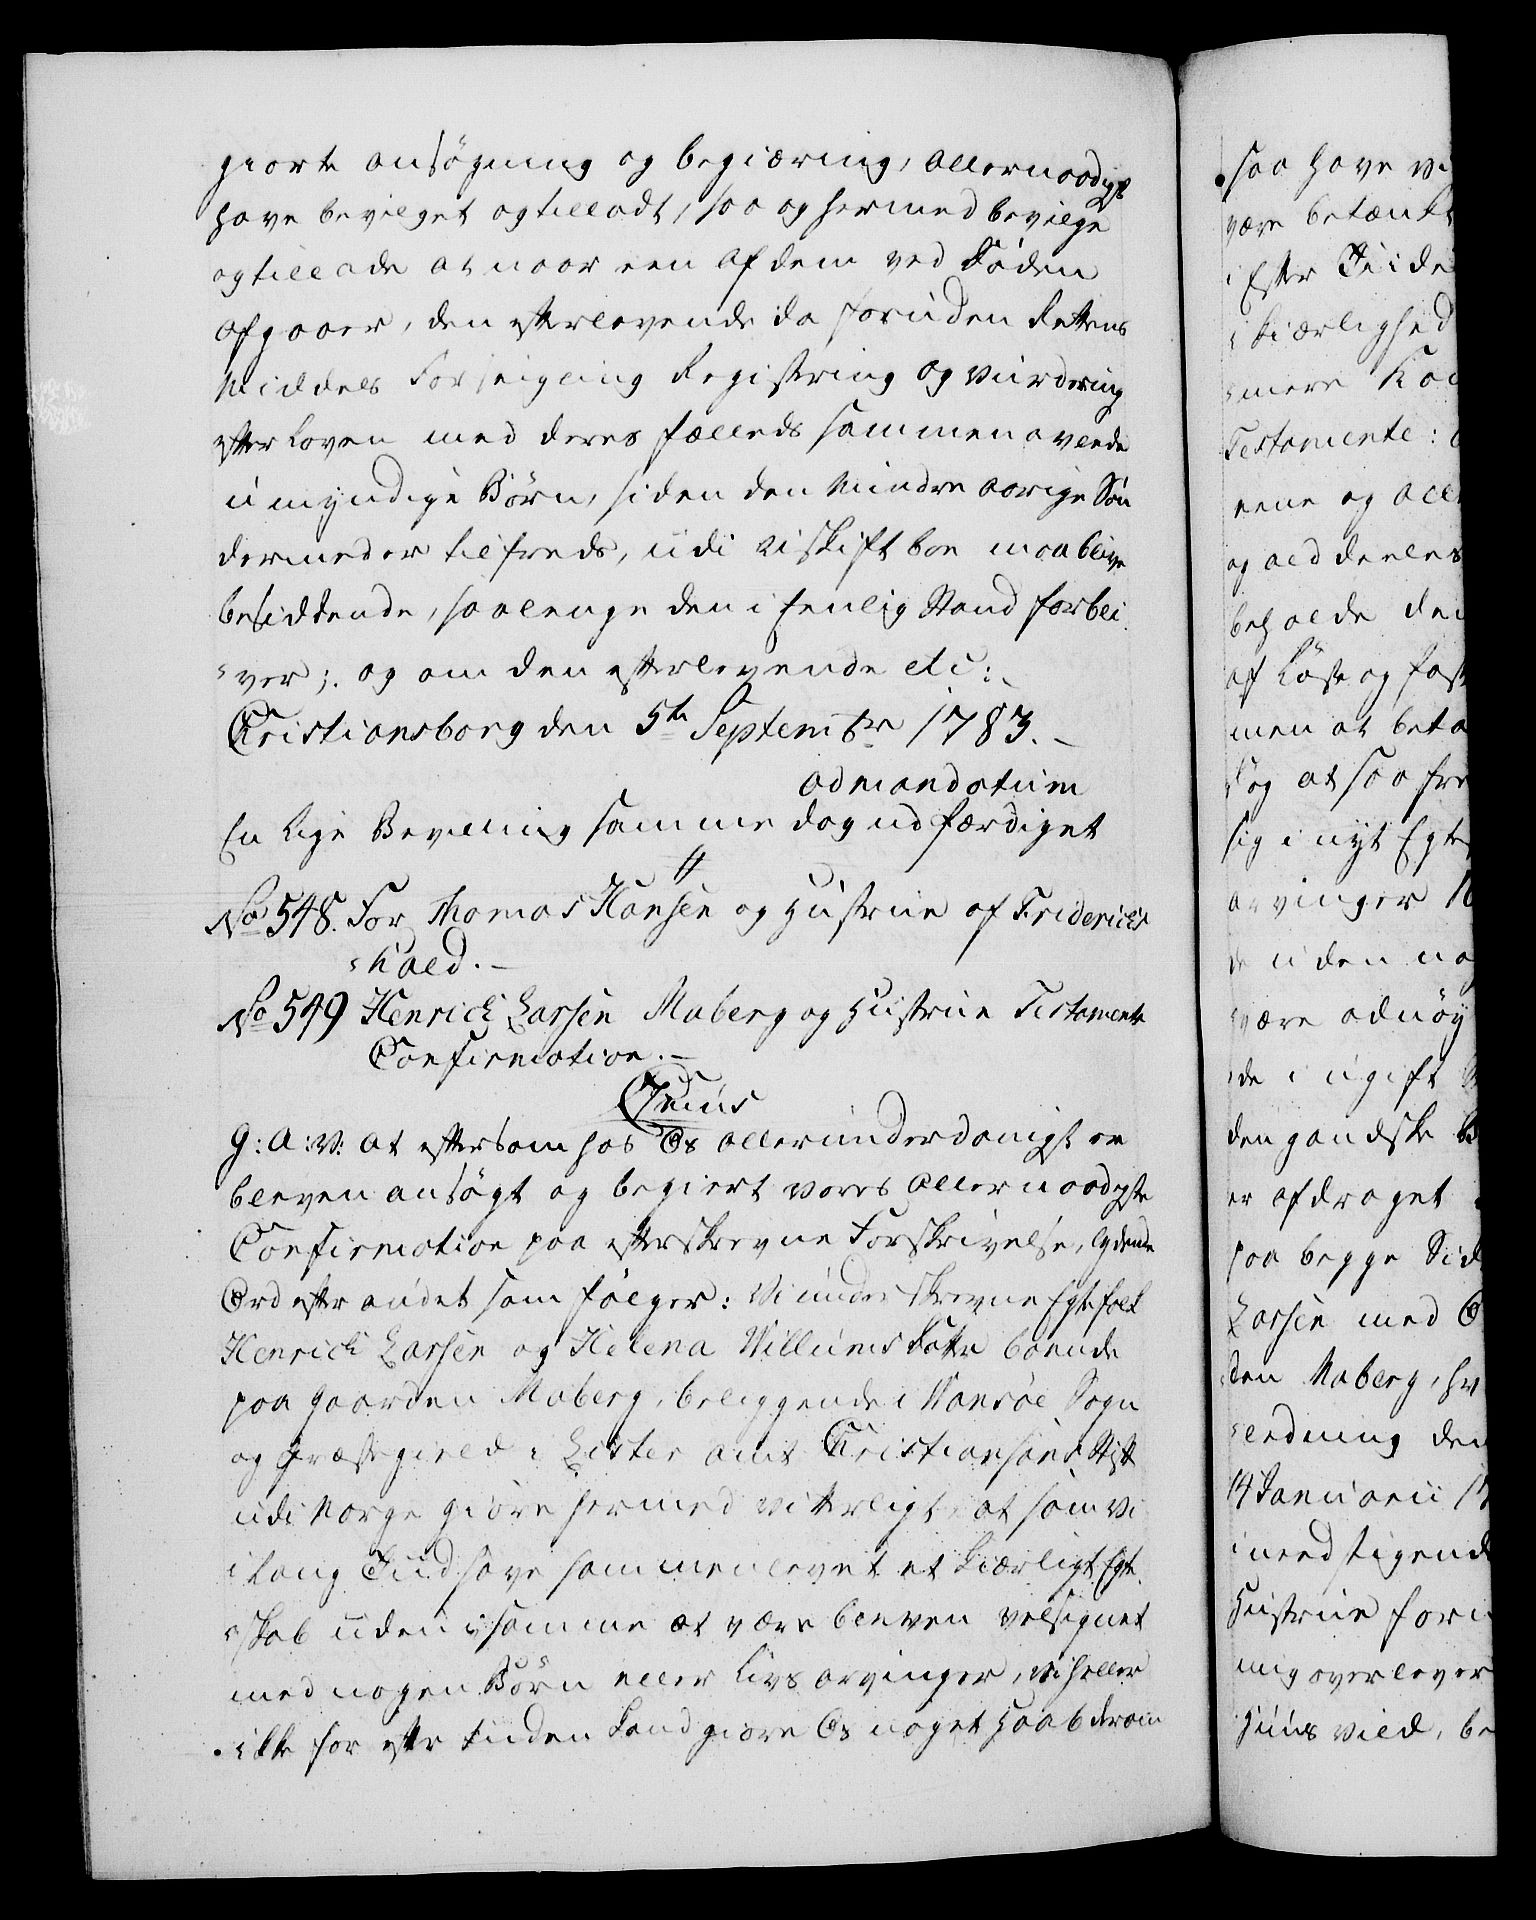 giorte ansøgning og begiæring, allernaadigst
have bevilget og tilladt, saa og hermed bevilge
og tillade at naar een af dem ved Døden
afgaaer, den efterlevende da foruden Rettens
Middels Forseigling Registring og Vurdering
efter Loven med deres fælleds sammenavlede
umyndige Børn, siden den Mindre aarige Søn
dermed er tilfreds, udi Uskift boe maa blive
besiddende, saalenge den i Eenlig Stand forbli
-ver; og om den efterlevende etc:
Christiansborg den 5te September 1783.
ad mandatum
En lige Bevilling samme dag udfærdiget
No 548. For Thomas Hansen og Hustrue af Friderichs
-hald.
No 549 Henrich Larsen Maberg og Hustrue Testamente
Confirmation.
Cujus
G: A: V: at eftersom hos Os allerunderdanigst er
bleven ansøgt og begiert vores allernaadigste
Confirmation paa efterskrevne Forskrivelse, lydende
Ord efter andet som følger: Vi underskrevne Egtefolk
Henrich Larsen og Helena Willums Datter boende
paa Gaarden Maberg, beliggende i Vansøe Sogn
og Præstegield i Lister Amt Christiansands Stift
udi Norge giøre hermed vitterligt, at som vi
i lang Tiid have sammenlevet et kiærligt Egte
-skab uden i samme at være bleven velsignet
med nogen Børn eller Livs arvinger, vi heller
ikke her efter Tiden kand giøre Os noget Haab derom
saa have vi
være betænkt
i Efter Tiide
kiærlighed
Testamente:
eene og alle
og alddeeles
beholde den
af Løst og fast
men at beta
dog at saa fre
sig i nyt Egte
arvinger
de uden no
være adnøy
de i ugift
den gandske
er afdraget
paa begge Sid
Larsen med
den Maberg, hv
-ledning den
14 Januarii 17
-nedstigende
Hustrue foru
mig overlever
Huus vild, be